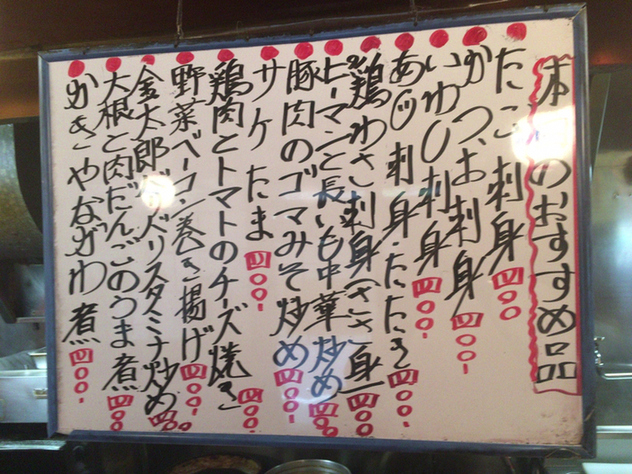 本日のおすすめ品
たこ刺身 四〇〇
かつお刺身 四〇〇-
いわし刺身 四〇〇-
あじ刺身・たたき 四〇〇-
鶏わさ刺身(ささ身) 四〇〇-
ピーマンと長いも中華炒め 四〇〇
豚肉のゴマみそ炒め 四〇〇-
サケたま 四〇〇-
鶏肉とトマトのチーズ焼き 四〇〇-
野菜ベーコン巻き揚げ 四〇〇-
金太郎 スタミナ炒め 四〇〇-
大根と肉だんごのうま煮 四〇〇
かきやながわ煮 四〇〇-